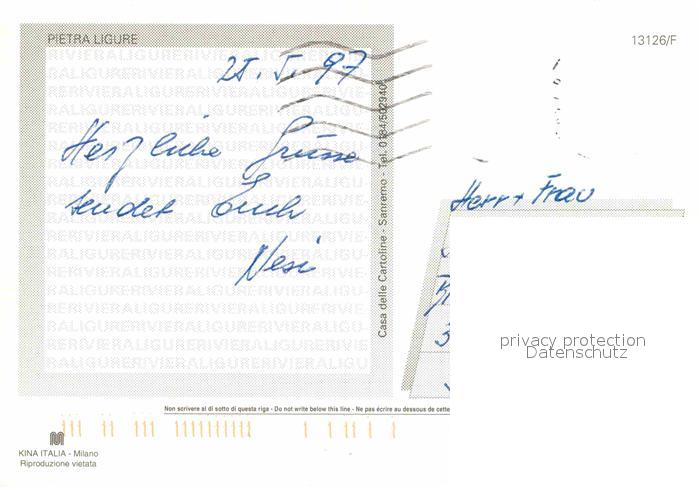 PIETRA LIGURE
13126/F
25. 5. 97
Herzliche Grüsse
sendet Euch
Casa delle Cartoline - Sanremo - Tel. 0184/502940
Herr + Frau
privacy protection
Datenschutz
Non scrivere al di sotto di questa riga - Do not write below this line - Ne pas écrire au dessous de cette
KINA ITALIA - Milano
Riproduzione vietata